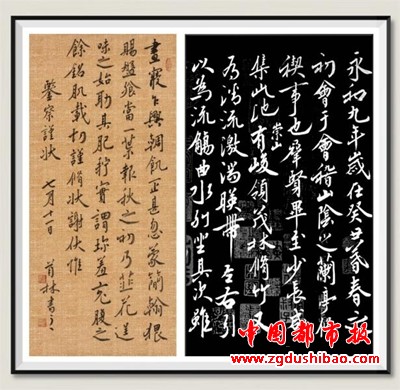 永和九年歲在癸丑暮春之
初會于會稽山陰之蘭亭脩
禊事也羣賢畢至少長咸
集此地有崇山峻領茂林脩竹又
有清流激湍暎帶左右引
以為流觴曲水列坐其次雖
晝寢乍興輖飢正甚忽蒙簡翰猥
賜盤飧當一葉報秋之初乃韭花逞
味之始助其肥羜實謂珍羞充腹之
餘銘肌載切謹脩狀謝伏惟
鑒察謹狀 七月十一日 肖林書之
中国都市报
www.zgdushibao.com